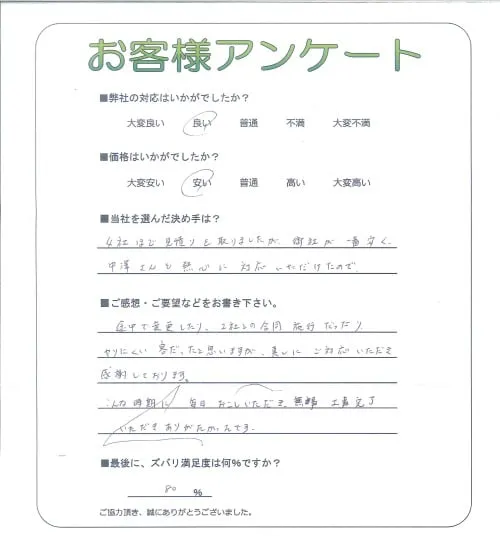 お客様アンケート
■弊社の対応はいかがでしたか？
大変良い 良い 普通 不満 大変不満
■価格はいかがでしたか？
大変安い 安い 普通 高い 大変高い
■当社を選んだ決め手は？
4社ほど見積りを取りましたが、御社が一番安く、
中澤さんも熱心に対応いただけたので。
■ご感想・ご要望などをお書き下さい。
途中で変更したり、2社との合同施行だったり
やりにくい客だったと思いますが、良いにご対応いただき
感謝しております。
こんな時期に毎日おこしいただき、無事工事完了
いただきありがたかったです。
■最後に、ズバリ満足度は何%ですか？
80 %
ご協力頂き、誠にありがとうございました。